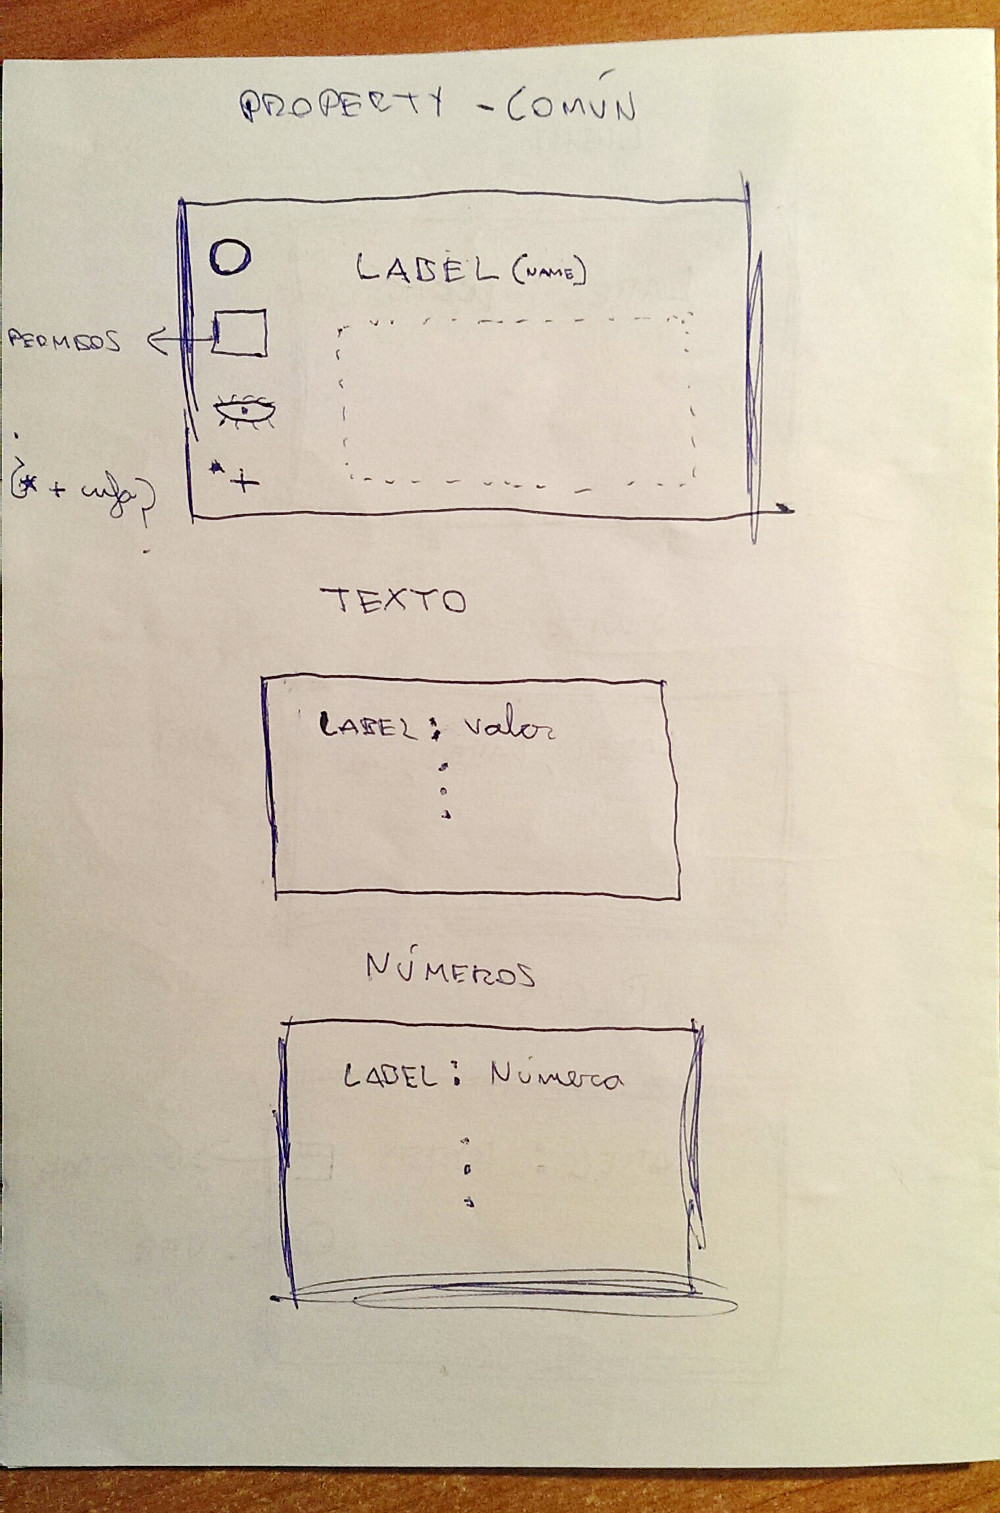 PROPERTY - COMÚN
LABEL (NAME)
PERMISOS
*+
¿* + info?
TEXTO
LABEL: Valor
NÚMEROS
LABEL: Número